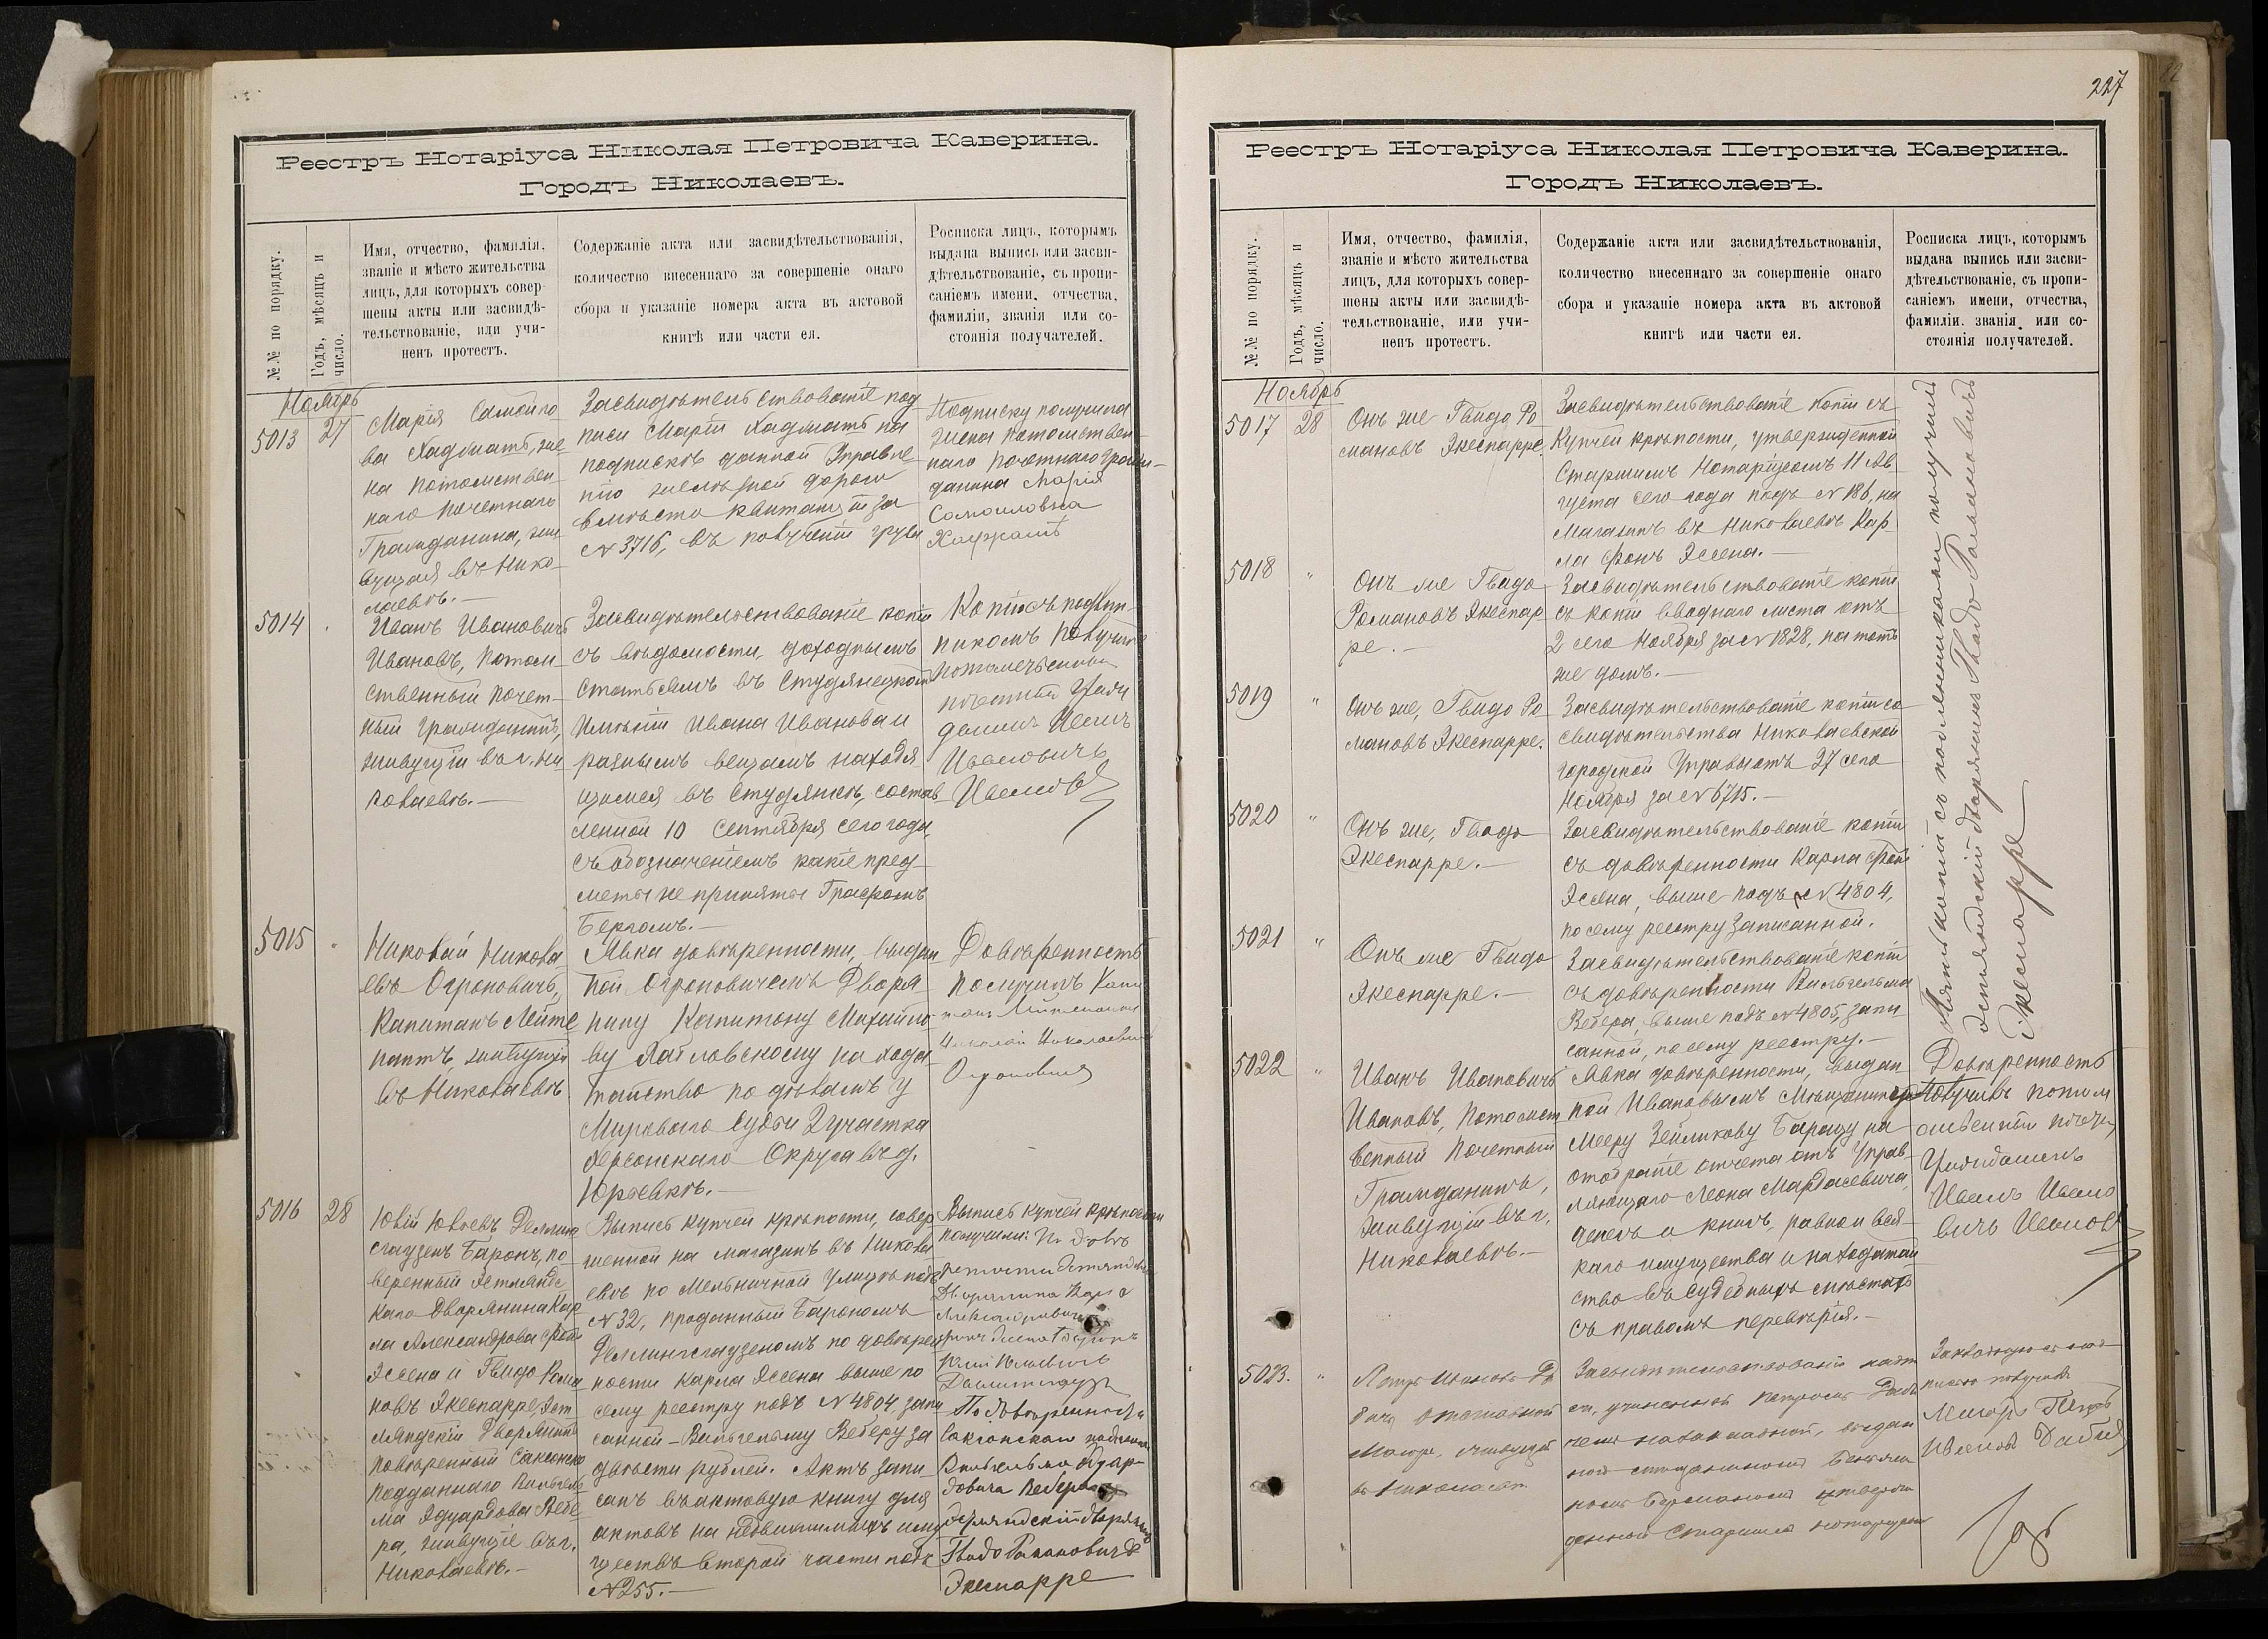 Реестръ Нотаріуса Николая Петровича Каверина.
Городъ Николаевъ.
№№ по порядку.
Годъ, мѣсяцъ и
число.
Имя, отчество, фамилія,
званіе и мѣсто жительства
лицъ, для которыхъ совер-
шены акты или засвидѣ-
тельствованіе, или учи-
ненъ протестъ.
Содержаніе акта или засвидѣтельствованія,
количество внесеннаго за совершеніе онаго
сбора и указаніе номера акта въ актовой
книгѣ или части ея.
Росписка лицъ, которымъ
выдана выпись или засви-
дѣтельствованіе, съ пропи-
саніемъ имени, отчества,
фамиліи, званія или со-
стоянія получателей.
Ноябрь
5013
27
Марія Самойло
ва Хаджатъ, же
на потомствен
наго почетнаго
Гражданина, жи
вущая въ Нико-
лаевѣ.—
Засвидѣтельствованіе под
писи Маріи Хаджатъ на
подпискѣ данной Управле
нію желѣзной дороги
вмѣсто квитанціи за
№ 3716, въ полученіи груза
Подписку получила
жена потомствен
наго почетнаго граж-
данина Марія
Самоиловна
Хаджатъ
5014
Иванъ Ивановичъ
Ивановъ, потом-
ственный почет-
ный гражданинъ,
живущій въ г. Ни
колаевѣ.—
Засвидѣтельствованіе копіи
съ вѣдомости, доходнымъ
статьямъ въ Студянецкомъ
Имѣніи Ивана Иванова и
разнымъ вещамъ находя
щимся въ Студянкѣ, состав
ленной 10 Сентября сего года,
съ обозначеніемъ какіе пред-
меты не приняты Графомъ
Бергомъ.—
Копію съ подлин-
никомъ получилъ
потомственный
почетный граж
данинъ Иванъ
Ивановичъ
Ивановъ
5015
Николай Никола
евъ Огроновичъ,
Капитанъ Лейте
нантъ, живущій
въ Николаевѣ
Явка довѣренности, выдан
ной Огроновичемъ Дворя
нину Капитону Михайло
ву на хода
тайство по дѣламъ у
Мироваго Судьи 2 участка
Херсонскаго Округа въ д.
Юрьевкѣ.—
Довѣренность
получилъ Капи
танъ Лейтенантъ
Николай Николаевичъ
Огроновичъ
5016
28
Юлій Юльевъ Деллинг
сгаузенъ Баронъ, по
вѣренный Эстляндс
каго Дворянина Кар
ла Александрова фонъ
Эссена и Гвидо Рома
новъ Экеспарре, Эст-
ляндскій Дворянинъ
повѣренный Саксонско
подданнаго Вильгель
ма Эдуардова Вебе
ра, живущіе въ г.
Николаевѣ.—
Выпись купчей крѣпости, совер
шенной на магазинъ въ Никола
евѣ по Мельничной улицѣ подъ
№ 32, проданный Барономъ
Деллингсгаузеномъ по довѣрен
ности Карла Эссена выше по
сему реестру подъ № 4804, запи
санной— Вильгельму Веберу за
двѣсти рублей. Актъ запи
санъ въ актовую книгу для
актовъ на недвижимыхъ иму
ществъ второй части подъ
№ 255.—
Выпись купчей крѣпости
получили: По довѣ
ренности Эстляндскаго
Дворянина Карла
Александровича
фонъ Эссена Баронъ
Юлій Юльевичъ
По довѣренности
Саксонскаго подданнаго
Вильгельма Эдуар-
довича Вебера
эстляндскій дворянинъ
Гвидо Романовичъ
Экеспарре
227
Реестръ Нотаріуса Николая Петровича Каверина.
Городъ Николаевъ.
№№ по порядку.
Годъ, мѣсяцъ и
число.
Имя, отчество, фамилія,
званіе и мѣсто жительства
лицъ, для которыхъ совер-
шены акты или засвидѣ-
тельствованіе, или учи-
ненъ протестъ.
Содержаніе акта или засвидѣтельствованія,
количество внесеннаго за совершеніе онаго
сбора и указаніе номера акта въ актовой
книгѣ или части ея.
Росписка лицъ, которымъ
выдана выпись или засви-
дѣтельствованіе, съ пропи-
саніемъ имени, отчества,
фамиліи. званія, или со-
стоянія получателей.
Ноябрь
5017
28
Онъ же Гвидо Ро
мановъ Экеспарре.
Засвидѣтельствованіе копіи съ
Купчей крѣпости, утвержденной
Старшимъ Нотаріусомъ 11 Ав
густа сего года подъ № 186, на
Магазинъ въ Николаевѣ Кар
ла фонъ Эссена.—
5018
"
Онъ же Гвидо
Романовъ Экеспар
ре.—
Засвидѣтельствованіе копіи
съ копіи вводнаго листа отъ
2 сего Ноября за № 1828, на тотъ
же домъ.—
5019
"
Онъ же, Гвидо Ро
мановъ Экеспарре.
Засвидѣтельствованіе копіи со
свидѣтельства Николаевской
Городской Управы отъ 27 сего
Ноября за № 6715.—
5020
"
Онъ же, Гвидо
Экеспарре.—
Засвидѣтельствованіе копіи
съ довѣренности Карла фонъ
Эссена, выше подъ № 4804,
по сему реестру записанной.
5021
"
Онъ же Гвидо
Экеспарре.—
Засвидѣтельствованіе копіи
съ довѣренности Вильгельма
Вебера, выше подъ № 4805, запи
санной, по сему реестру.—
Пять копій съ подлинниками получилъ
эстляндскій дворянинъ Гвидо Романовичъ
Экеспарре
5022
"
Иванъ Ивановичъ
Ивановъ, Потомст
венный Почетный
Гражданинъ,
живущій въ г.
Николаевѣ.—
Явка довѣренности, выдан
ной Ивановымъ Мѣщанину
Мееру Зейликову Баращу на
отобраніе отчета отъ Управ
ляющаго Леона Мардасевича,
денегъ и книгъ, равно и вся-
каго имущества и на ходатай
ство въ судебныхъ мѣстахъ
съ правомъ перевѣрія.—
Довѣренность
получилъ потом
ственный почетн
Гражданинъ
Иванъ Ивано
вичъ Ивановъ
5023.
"
Петръ Ивановъ Да
бичъ отставной
Маіоръ, живущій
въ Николаевѣ
Засвидѣтельствованіе надпи
си, учиненной Петромъ Даби
чемъ на закладной, выдан
ной
утверж
денной Старшимъ Нотаріусомъ
Закладную съ над-
писью получилъ
Маіоръ Петръ
Ивановъ Дабичъ